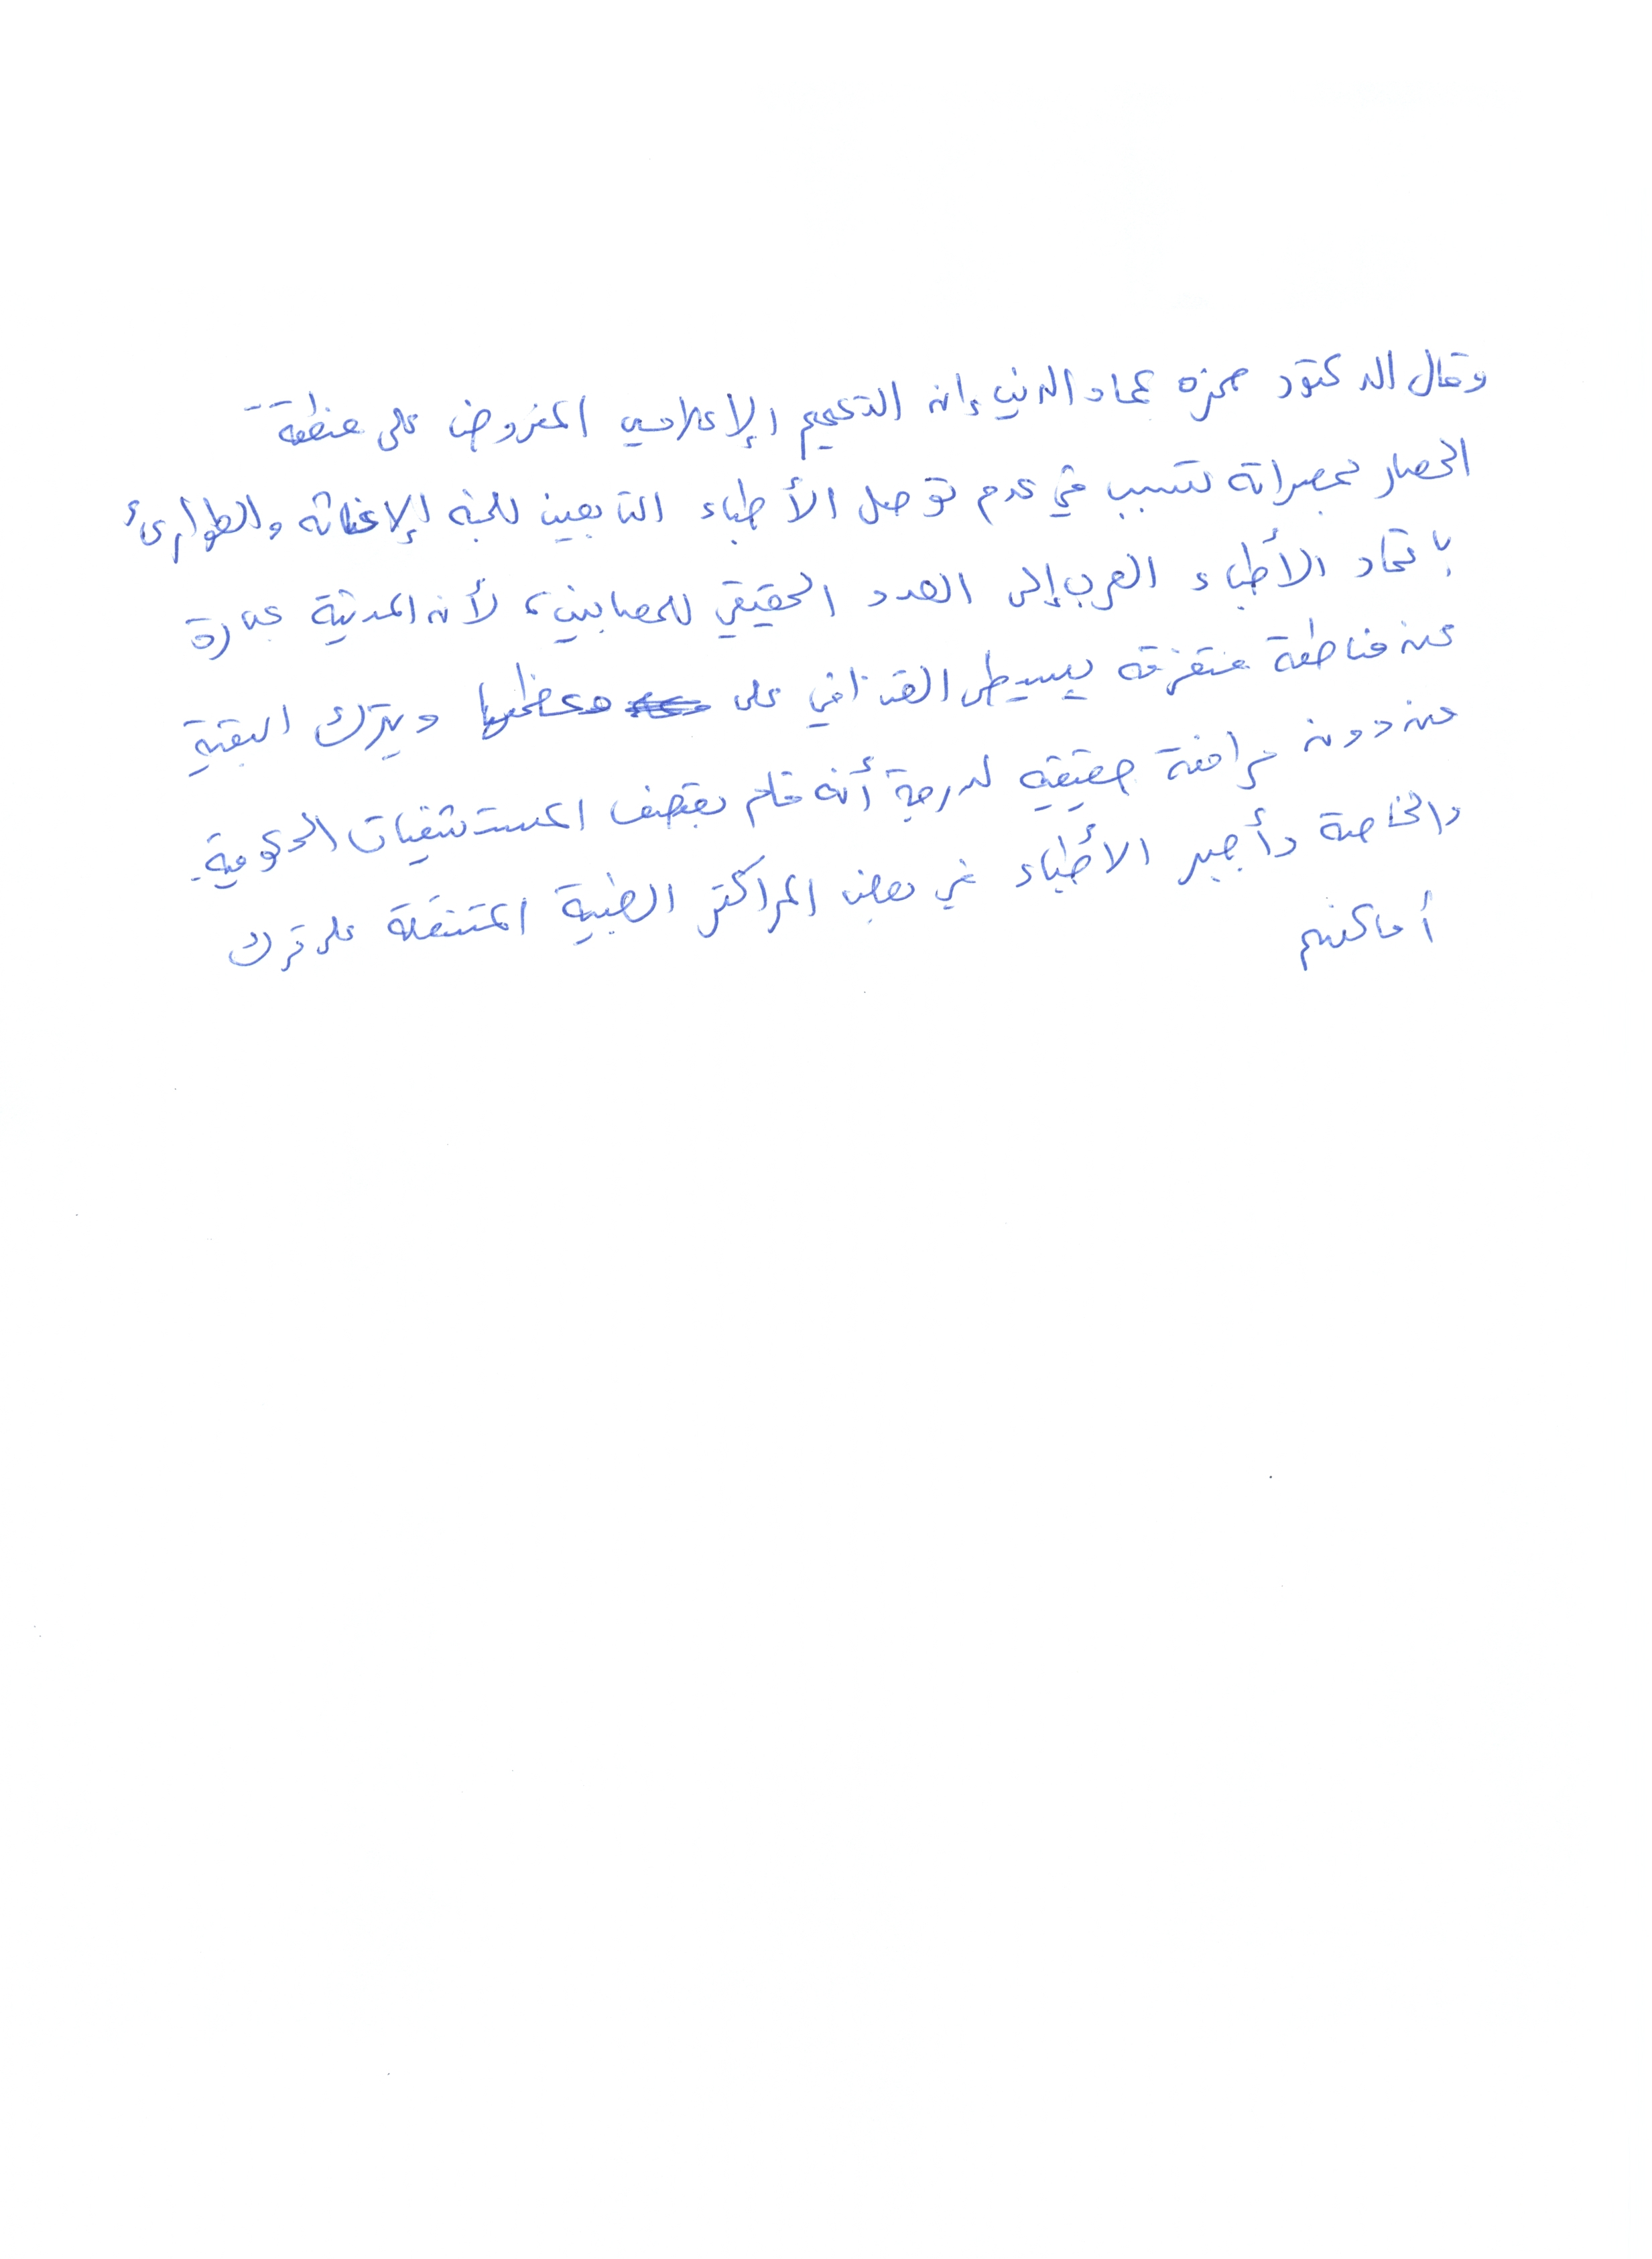 وقال الدكتور حمزه عماد الدين إن التعتيم الإعلامي المفروض على منطقة
الحصار بمصراتة تسبب في عدم توصل الأطباء التابعين للجنة الإغاثه والطوارئ
باتحاد الأطباء العرب إلى العدد الحقيقي للمصابين، لأن المدينة عبارة
عن مناطق متفرقه يسيطر القذافي على معظمها ويترك البقية
من دون مراقبة حقيقيه لدرجة أنه قام بقصف المستشفيات الحكومية
والخاصة وأجبر الأطباء في بعض المراكز الطبية المتنقلة على ترك
أماكنهم